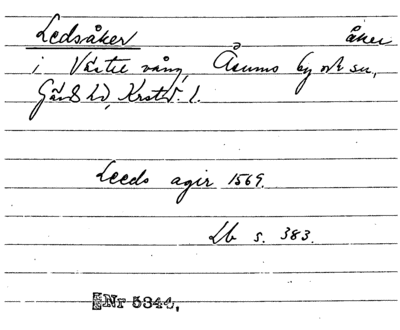 Ledsåker åker
i Västre vång, Åsums by och sn,
Gärds hd, Krstd. l.
Leeds agir 1569.
Lb s. 383.
Nr 5344,